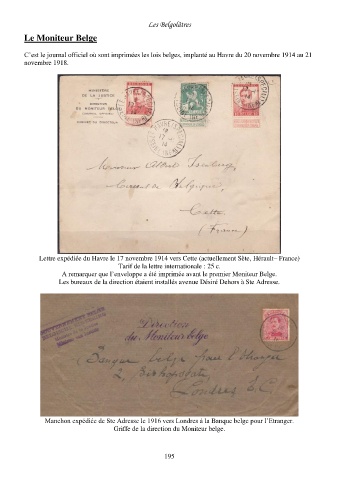 Les Belgolâtres
Le Moniteur Belge
C'est le journal officiel où sont imprimées les lois belges, implanté au Havre du 20 novembre 1914 au 21
novembre 1918.
MINISTÈRE
DE LA JUSTICE
DIRECTION
DU MONITEUR BELGE
17
14
Monsieur Albert
Consul de Belgique
Cette
(France)
Lettre expédiée du Havre le 17 novembre 1914 vers Cette (actuellement Sète, Hérault– France)
Tarif de la lettre internationale : 25 c.
A remarquer que l'enveloppe a été imprimée avant le premier Moniteur Belge.
Les bureaux de la direction étaient installés avenue Désiré Dehors à Ste Adresse.
Direction
du Moniteur belge
Banque belge pour l'Etranger
2, Bishopsgate
Londres E.C.
Manchon expédiée de Ste Adresse le 1916 vers Londres à la Banque belge pour l'Etranger.
Griffe de la direction du Moniteur belge.
195